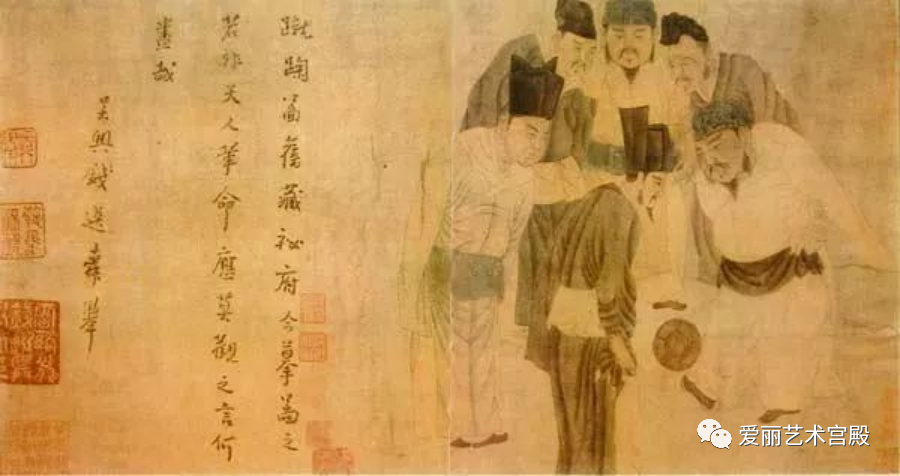 蹴踘啚舊藏祕府今摹啚之
若非天人革命應莫觀之言何
盡哉
吳興錢選舜舉
爱丽艺术宫殿